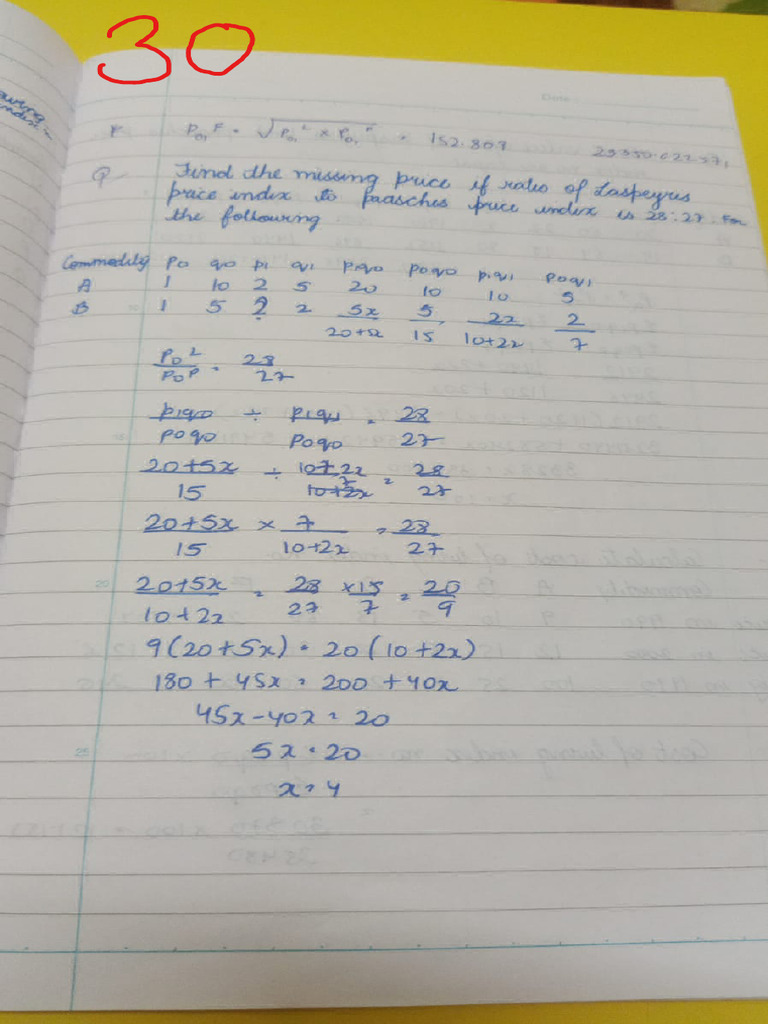 30
Date :
P₀₁ᶠ = √P₀₁ᴸ × P₀₁ᴾ = 152.807
Q- Find the missing price if ratio of Laspeyris
price index to paasches price index is 28:27. For
the following
Commodity po qo p1 q1 p1qo poqo p1q1 poq1
A 1 10 2 5 20 10 10 5
B 1 5 ? 2 5x 5 2x 2
20+5x 15 10+2x 7
P₀ᴸ/P₀ᴾ = 28/27
p1qo/poqo ÷ p1q1/poqo = 28/27
20+5x/15 ÷ 10+2x/7 = 28/27
20+5x/15 × 7/10+2x = 28/27
20+5x/10+2x = 28/27 × 15/7 = 20/9
9(20+5x) = 20(10+2x)
180 + 45x = 200 + 40x
45x-40x = 20
5x = 20
x = 4